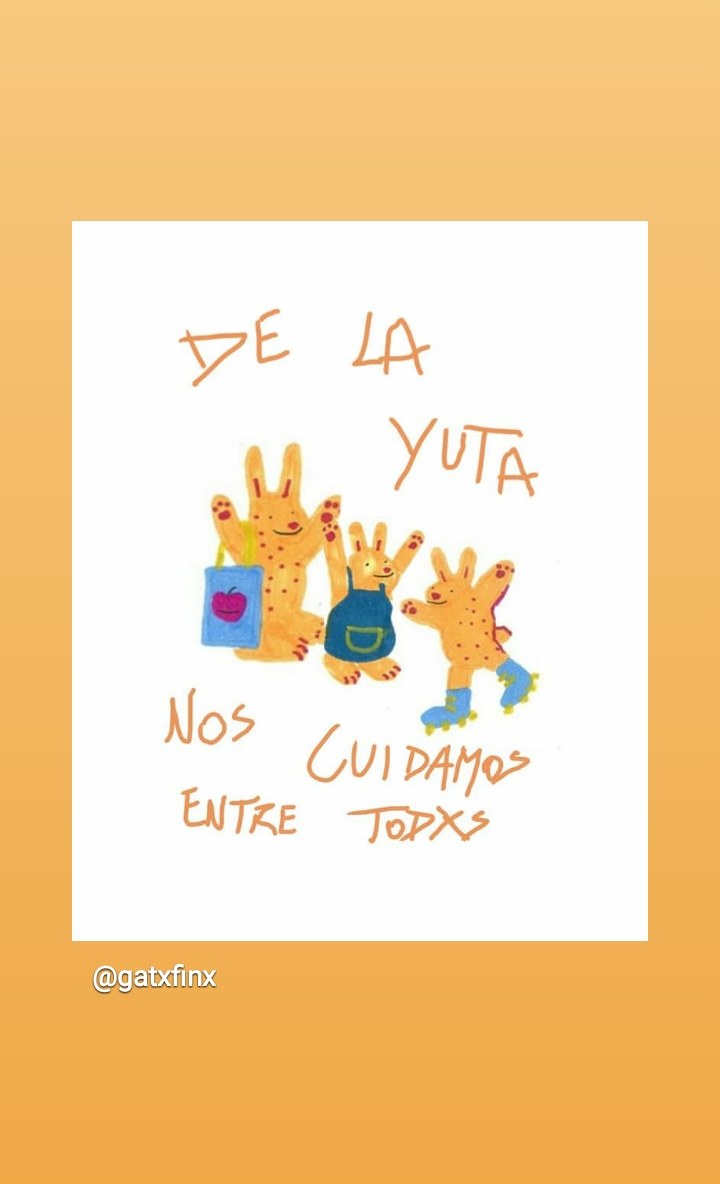 DE LA
YUTA
NOS CUIDAMOS
ENTRE TODXS
@gatxfinx